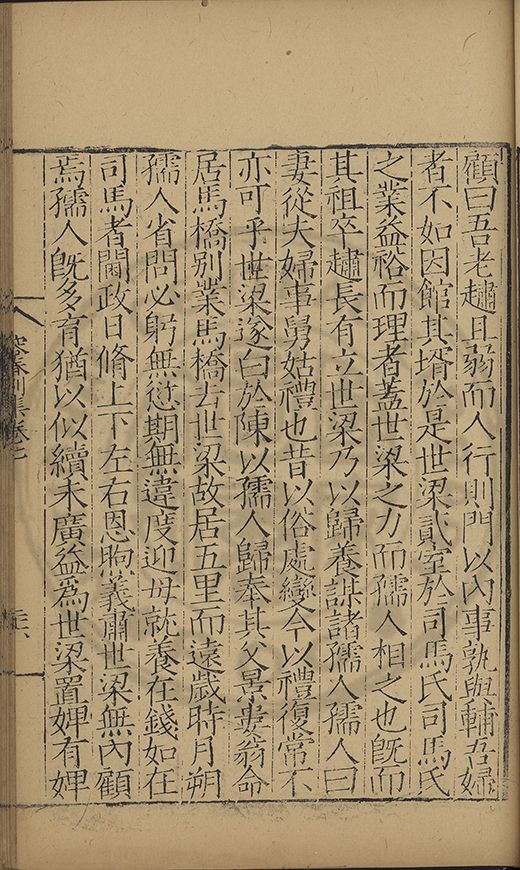 顧曰吾老䎘且弱而人行則門以內事孰與輔吾婦
者不如因館其壻於是世梁貳室於司馬氏司馬氏
之業益裕而理者蓋世梁之力而孺人相之也旣而
其祖卒䎘長有立世梁乃以歸養謀諸孺人孺人曰
妻從夫婦事舅姑禮也昔以俗處變今以禮復常不
亦可乎世梁遂白於陳以孺人歸奉其父景㚷翁命
居馬橋别業馬橋去世梁故居五里而遠歲時月朔
孺人省問必躬無愆期無違度迎母就養在錢如在
司馬者閫政日脩上下左右恩煦義肅世梁無內顧
焉孺人旣多育猶以似續未廣益爲世梁置婢有婢
别集卷